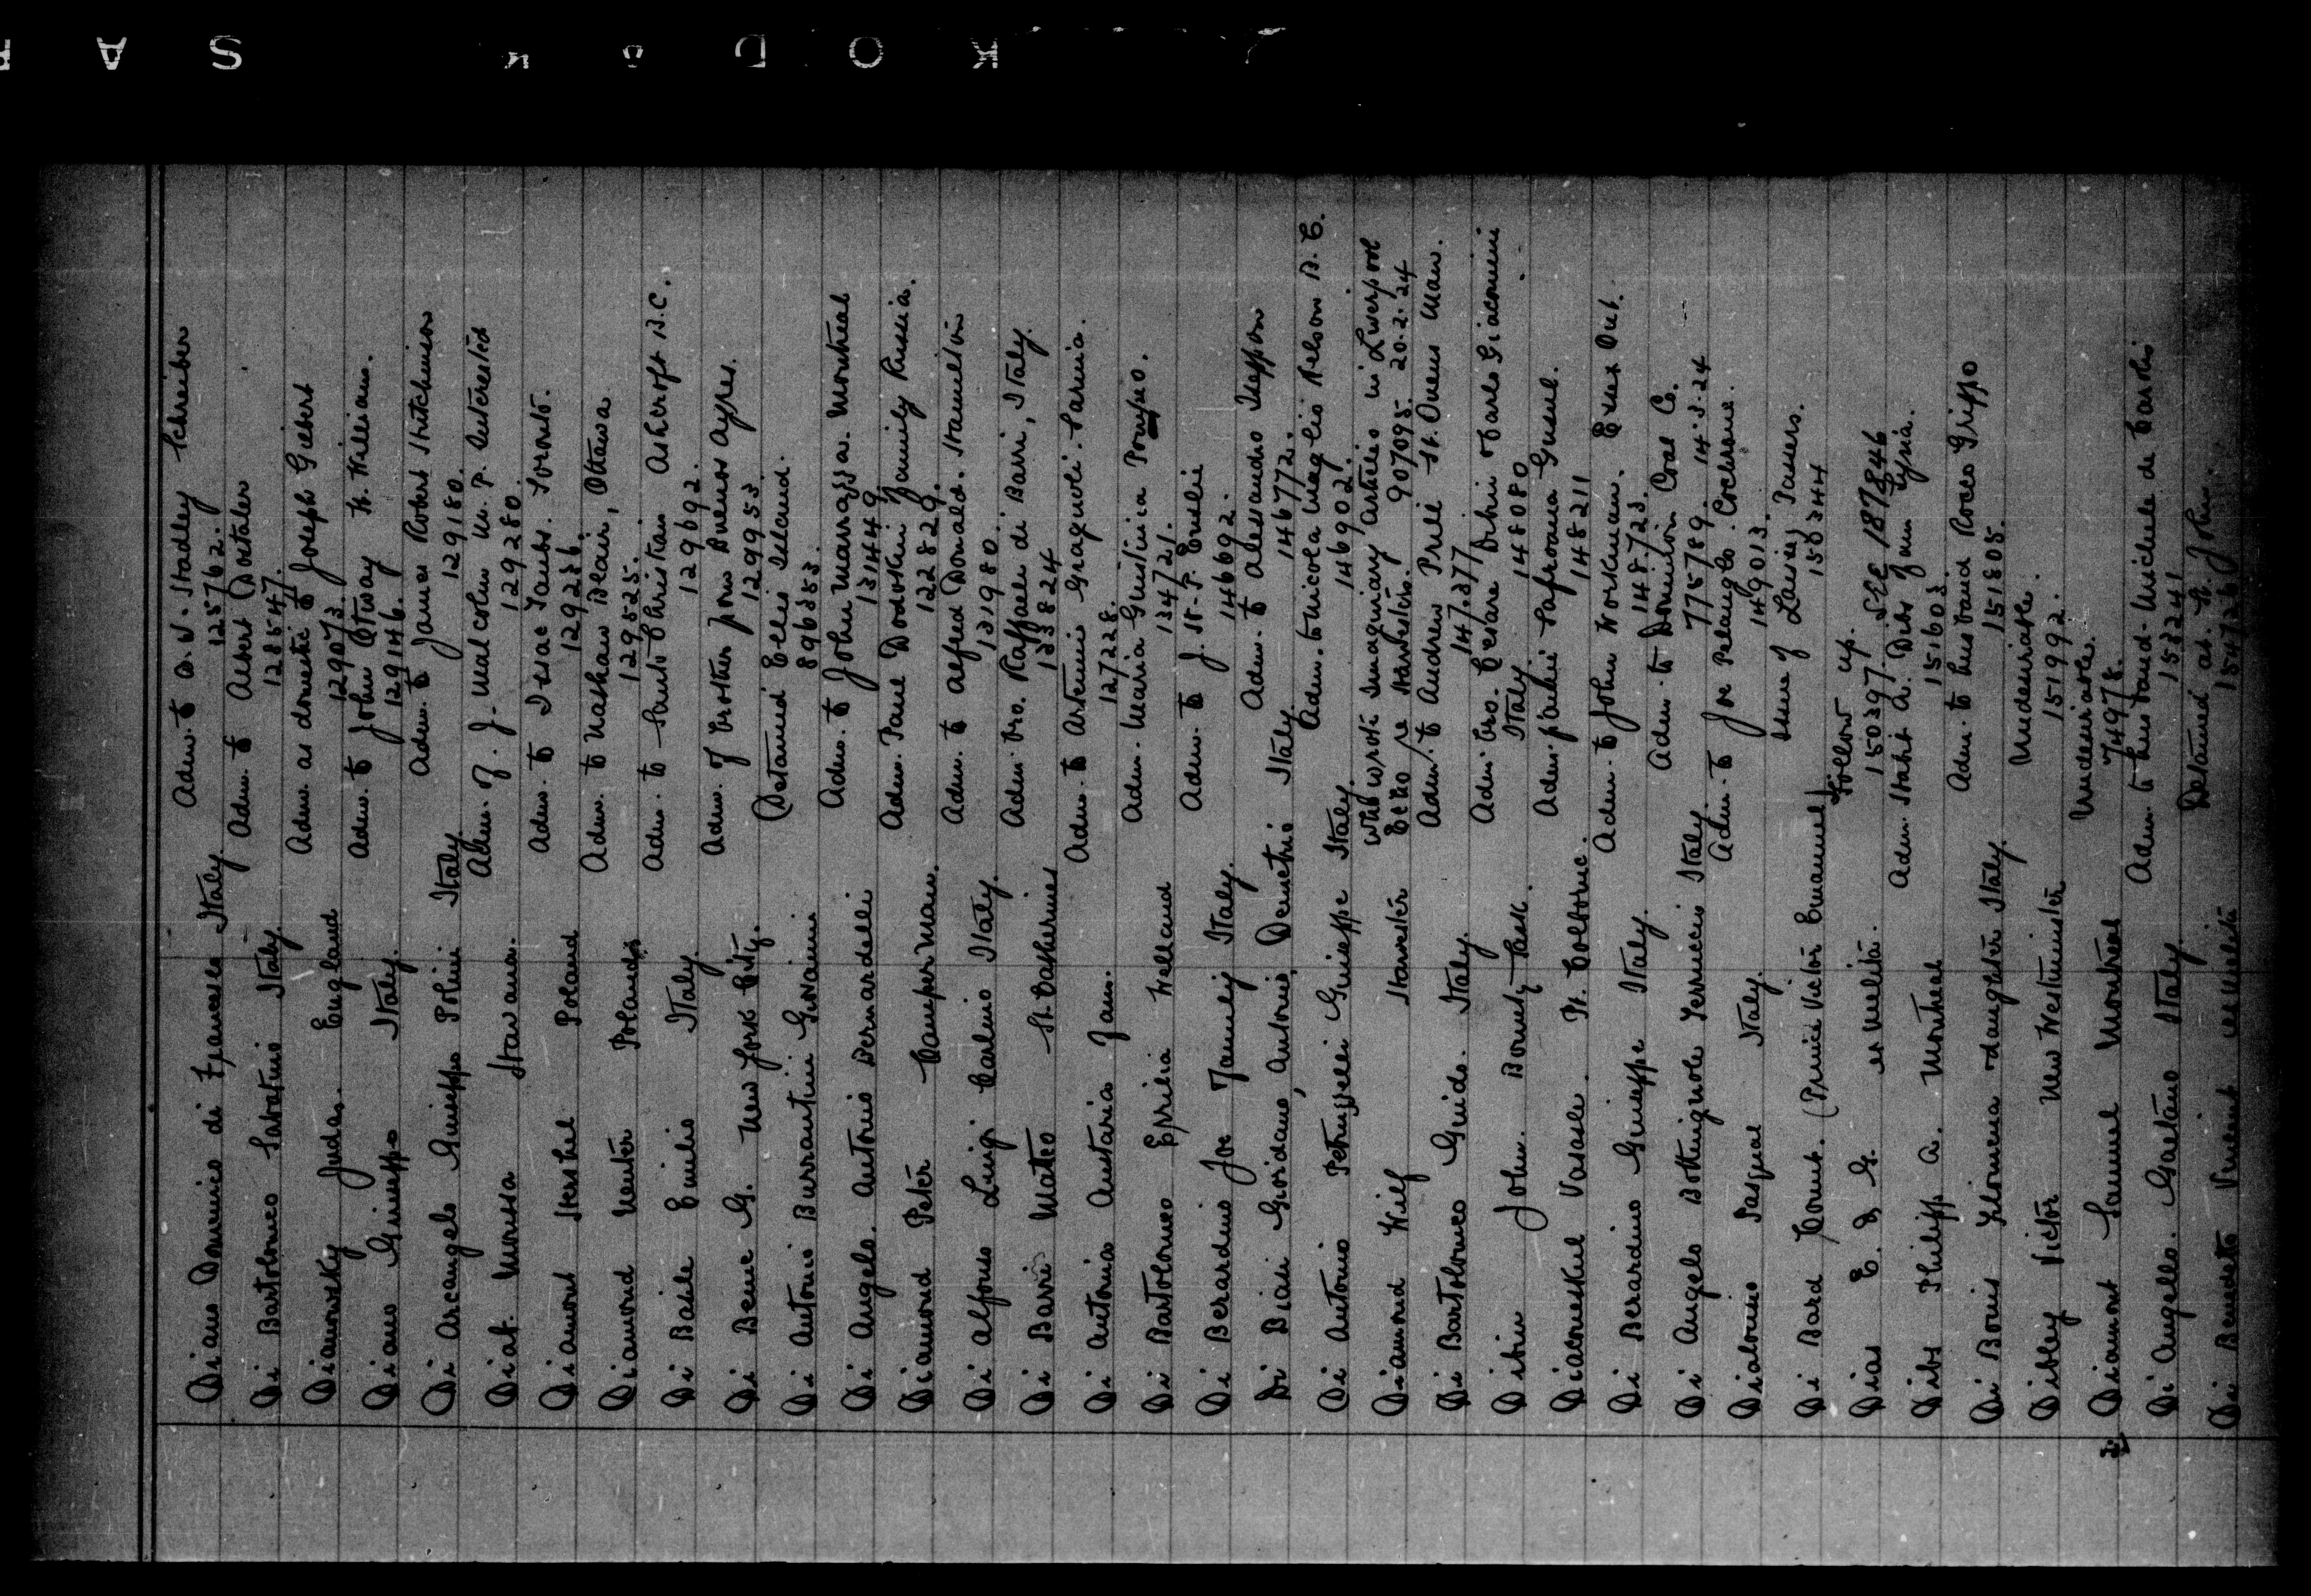 Diano Domenico di Francesco Italy. Adm. to D. W. Stadley Schreiber 125762.
Di Bartolomeo Sabatino Italy. Adm. to Albert Dastaler 128547.
Dianowsky Judas. England Adm. as domestic to Joseph Giebert 129073.
Diano Guiseppo Italy. Adm. to John Otway Ft. William. 129146.
Di Arcangelo Guiseppe Polini Italy Adm. to James Robert Hutchinson 129180.
Diab. Moussa Havana. Adm. of. J. Malcolm M. P. Interested 129280.
Diamond Hershel Poland Adm. to Isaac Taubs. Toronto. 129236.
Diamond Menter Poland Adm. to Nathan Blair, Ottawa 129525.
Di Basile Emilio Italy Adm. to Santo Christian Ashcroft B.C. 129692.
Di Bene G. New York City. Adm. of brother from Buenos Ayres. 129953.
Di Antonio Burrantini Giovanni (Detained Ellis Island. 896353.
Di Angelo. Antonio Bernardelli Adm. to John Marrazza. Montreal 131449.
Diamond Peter Camper Man. Adm. Paul Dodotkin family Russia. 122829.
Di Alfonso Luigi Carlino Italy. Adm. to Alfred Donald. Hamilton 131980.
Di Barri Mateo St. Catherines Adm. bro. Raffaele di Barri, Italy. 133824
Di Antonia Austaria Jam. Adm. to Artemio Gragnoli. Sarnia. 127228.
Di Bartolomeo Erpilia Welland Adm. Maria Guistina Pompeo. 134721.
Di Berardino Joe Family Italy. Adm. to J. St. P. Euslie 146692.
Di Biasi Giordano, Antonio, Demetrio Italy. Adm. to Alessandro Steffon 146772.
Di Antonio Petruzzelli Guiseppe Italy. Adm. to Nicola Maglio Nelson B. C. 146902.
Diamond Wilf Harvester who wrote imaginary article in Liverpool Echo re Harvesters. 907095. 20.2.24
Di Bartolomeo Guido. Italy. Adm. to Andrew Prell St. Ouens Man. 147377
Dibin John. Bounty Sask. Adm. bro. Cesare Dibin o Carlo Giacomini Italy. 148080
Diaconeskul Vasasle. Pt. Colborne. Adm. Paulie Safroama Gusul. 148211
Di Berardino Guiseppe Italy. Adm. to John Workman. Essex Ont. 148723.
Di Angelo Bottignole Ferruccio Italy. Adm. to Dominion Coal Co. 775789. 14.3.24
Diabomo Pasqual Italy. Adm. to Joe Pelanglo. Cochrane. 149013.
Di Bard Count. (Prince Victor Emanuel) Issue of Laissez Passers. 150344
Dias E. J. G. ex Melita. Follow up. 150397. SEE 1878846
Dibs Philip A. Montreal Adm. Habib A. Dibs from Syria. 151603
Di Bonis Filomena & daughter Italy. Adm. to husband Rocco Grippo 151805.
Dibley Victor New Westminster Undesirable. 151992.
Diamont Samuel Montreal Undesirable. 74978.
Di Angello. Gaetano Italy Adm. to husband. Michele de Carolis 153241
Di Benedeto Vincent ex Melita Detained at St. John. 154726